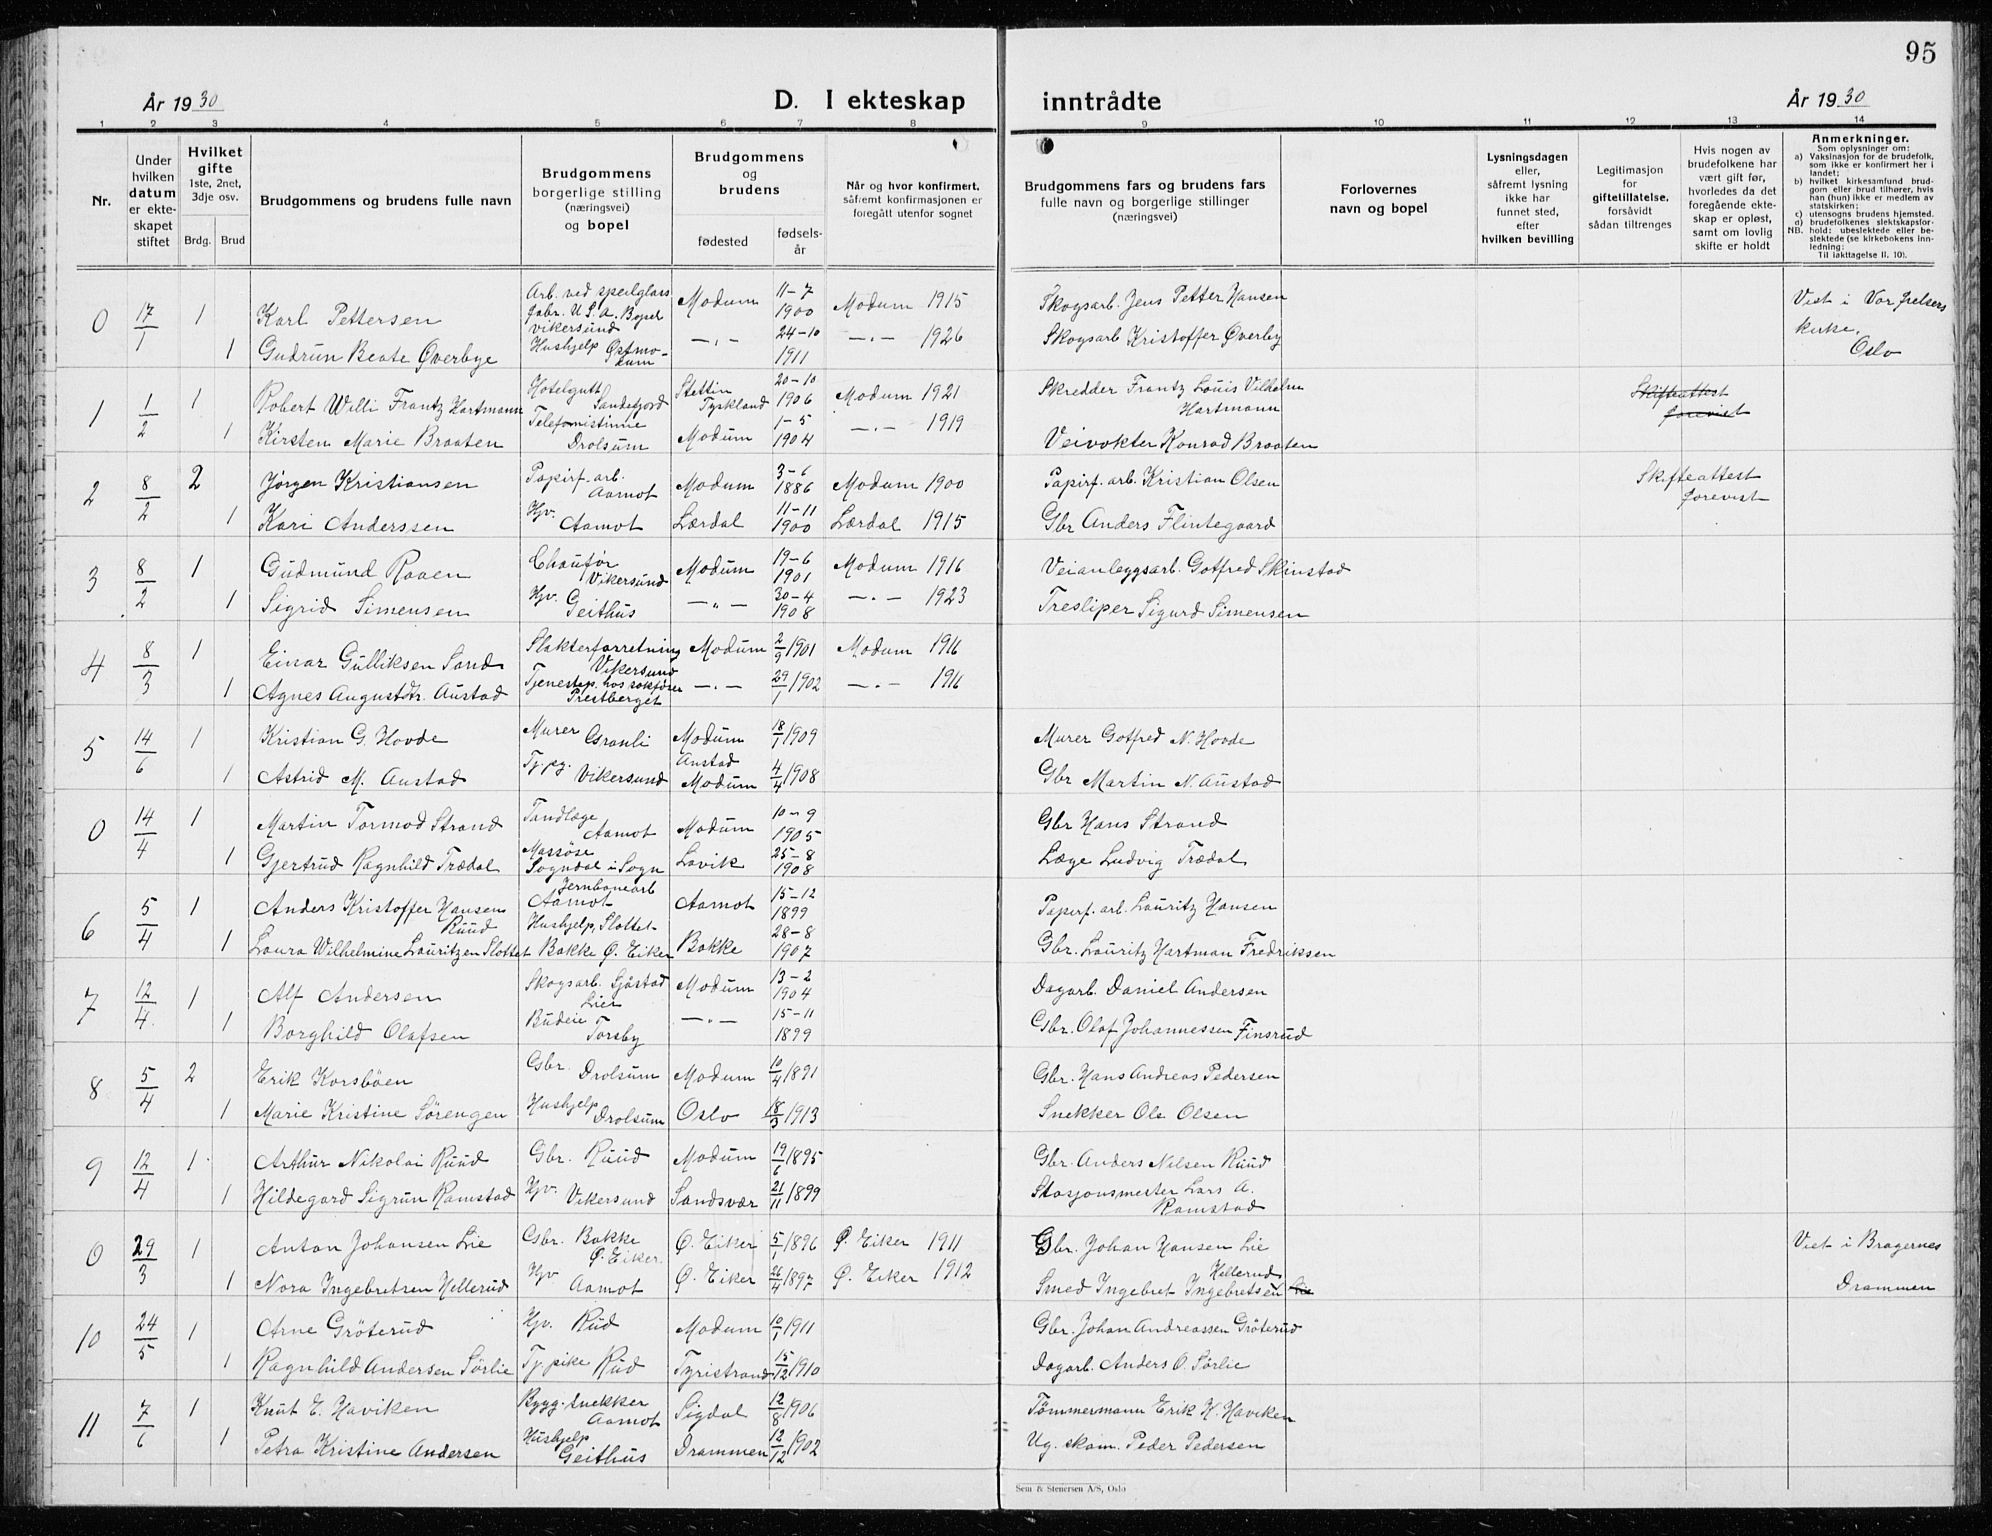 95
År 1930
D. I ekteskap inntrådte
År 1930
1 2 3 4 5 6 7 8 9 10 11 12 13 14
Nr.
Under hvilken datum er ekteskapet stiftet
Hvilket gifte 1ste, 2net, 3dje osv.
Brdg. Brud
Brudgommens og brudens fulle navn
Brudgommens borgerlige stilling (næringsvei) og bopel
Brudgommens og brudens
fødested fødselsår
Når og hvor konfirmert, såfremt konfirmasjonen er foregått utenfor sognet
Brudgommens fars og brudens fars fulle navn og borgerlige stillinger (næringsvei)
Forlovernes navn og bopel
Lysningsdagen eller, såfremt lysning ikke har funnet sted, efter hvilken bevilling
Legitimasjon for giftetillatelse, forsåvidt sådan tiltrenges
Hvis nogen av brudefolkene har vært gift før, hvorledes da det foregående ekteskap er opløst, samt om lovlig skifte er holdt
Anmerkninger.
Som oplysninger om:
a) Vaksinasjon for de brudefolk, som ikke er konfirmert her i landet;
b) hvilket kirkesamfund brudgom eller brud tilhører, hvis han (hun) ikke er medlem av statskirken;
c) utensogns brudens hjemsted.
d) brudefolkenes slektskapsforhold: ubeslektede eller beslektede (se kirkebokens innledning:
NB.
Til iakttagelse II. 10).
0 17/1 1 Karl Pettersen Arb. ved speilglass fabr. U.S.A. Bopel Vikersund Modum 11-7 1900 Modum 1915 Skogsarb. Jens Petter Hansen Viet i Vor frelsers kirke, Oslo
1 Gudrun Beate Øverbye Hushjelp Østmodum -"- 24-10 1911 -"- 1926 Skogsarb Kristoffer Øverby
1 1/2 1 Robert Willi Frantz Hartmann Hotelgutt Sandefjord Stettin Tyskland 20-10 1906 Modum 1921 Skredder Frantz Louis Vilhelm Hartmann Skifteattest forevist
1 Kirsten Marie Braaten Telefonistinne Drolsum Modum 1-5 1904 -"- 1919 Veivokter Konrad Braaten
2 8/2 2 Jörgen Kristiansen Papirf. arb. Aamot Modum 3-6 1886 Modum 1900 Papirf. arb. Kristian Olsen Skifteattest forevist
1 Kari Anderssen Hjv. Aamot Lærdal 11-11 1900 Lærdal 1915 Gbr Anders Flintegaard
3 8/2 1 Gudmund Raaen Chaufør Vikersund Modum 19-6 1901 Modum 1916 Veianleggsarb. Gotfred Skinstad
1 Sigrid Simensen Hjv. Geithus -"- 30-4 1908 -"- 1923 Tresliper Sigurd Simensen
4 8/3 1 Einar Gulliksen Sand Slakterforretning Vikersund Modum 2/9 1901 Modum 1916
1 Agnes Augustdtr. Austad Tjenestep. hos sakfører Prestberget -"- 29/1 1902 -"- 1916
5 14/6 1 Kristian G. Hovde Murer Granli Modum 18/1 1909 Murer Gotfred N. Hovde
1 Astrid M. Austad Tj.pg. Vikersund Austad Modum 4/4 1908 Gbr Martin N. Austad
0 14/4 1 Martin Tormod Strand Tandlæge Aamot Modum 10-9 1905 Gbr Hans Strand
1 Gjertrud Ragnhild Trædal Massöse Sogndal i Sogn Lavik 25-8 1908 Læge Ludvig Trædal
6 5/4 1 Anders Kristoffer Hansen Ruud Jernbanearb Aamot Aamot 15-12 1899 Papirf. arb. Lauritz Hansen
1 Laura Wilhelmine Lauritzen Slottet Hushjelp, Slottet Bakke Ø. Eiker Bakke 28-8 1907 Gbr. Lauritz Hartman Fredriksen
7 12/4 1 Alf Andersen Skogsarb. Sjåstad Lier Modum 13-2 1904 Dagarb. Daniel Andersen
1 Borghild Olafsen Budeie Torsby -"- 15-11 1899 Gbr. Olaf Johannessen Finsrud
8 5/4 2 Erik Korsböen Gbr. Drolsum Modum 10/4 1891 Gbr. Hans Andreas Pedersen
1 Marie Kristine Sörengen Hushjelp Drolsum Oslo 18/3 1913 Snekker Ole Olsen
9 12/4 1 Arthur Nikolai Ruud Gbr. Ruud Modum 19/6 1895 Gbr. Anders Nilsen Ruud
1 Hildegard Sigrun Ramstad Hjv. Vikersund Sandsvær 21/11 1899 Stasjonsmester Lars A. Ramstad
0 29/3 1 Anton Johansen Lie Gbr. Bakke Ø. Eiker Ø. Eiker 5/1 1896 Ø. Eiker 1911 Gbr. Johan Hansen Lie Viet i Bragernes Drammen
1 Nora Ingebretsen Hellerud Hjv Aamot Ø. Eiker 26/4 1897 Ø. Eiker 1912 Smed Ingebret Ingebretsen Hellerud
10 24/5 1 Arne Gröterud Hjv. Rud Modum 10/1 1911 Gbr. Johan Andreassen Gröterud
1 Ragnhild Andersen Sörlie Tj.pike Rud Tyristrand 15/12 1910 Dagarb. Anders O. Sørlie
11 7/6 1 Knut E. Haviken Bygg. snekker Aamot Sigdal 12/8 1906 Tömmermann Erik K. Haviken
1 Petra Kristine Andersen Hushjelp Geithus Drammen 12/12 1902 Ug. skom. Peder Pedersen
Sem & Stenersen A/S, Oslo